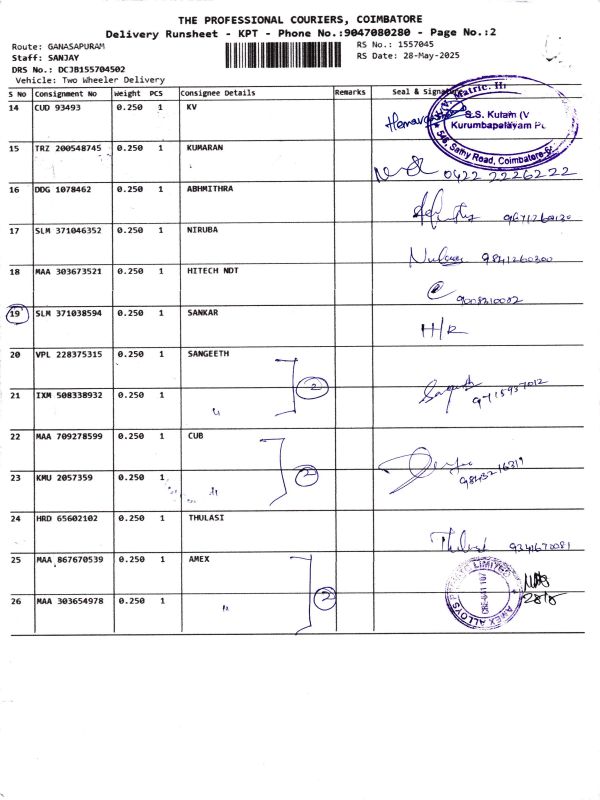 THE PROFESSIONAL COURIERS, COIMBATORE
Delivery Runsheet - KPT - Phone No.:9047080280 - Page No.:2
Route: GANASAPURAM
RS No.: 1557045
Staff: SANJAY
RS Date: 28-May-2025
DRS No.: DCJB155704502
Vehicle: Two Wheeler Delivery
S No Consignment No Weight PCS Consignee Details Remarks Seal &
14 CUD 93493 0.250 1 KV
S.S. Kulam (V
Kurumbapalayam P
Samy Road, Coimbatore
15 TRZ 200548745 0.250 1 KUMARAN
0422 2226222
16 DDG 1078462 0.250 1 ABHMITHRA
17 SLM 371046352 0.250 1 NIRUBA
9841260300
18 MAA 303673521 0.250 1 HITECH NDT
19 SLM 371038594 0.250 1 SANKAR
H/R
20 VPL 228375315 0.250 1 SANGEETH
2
21 IXM 508338932 0.250 1 "
9715937012
22 MAA 709278599 0.250 1 CUB
2
23 KMU 2057359 0.250 1 "
24 HRD 65602102 0.250 1 THULASI
25 MAA 867670539 0.250 1 AMEX
AMEX ALLOYS PRIVATE LIMITED
2
26 MAA 303654978 0.250 1 "